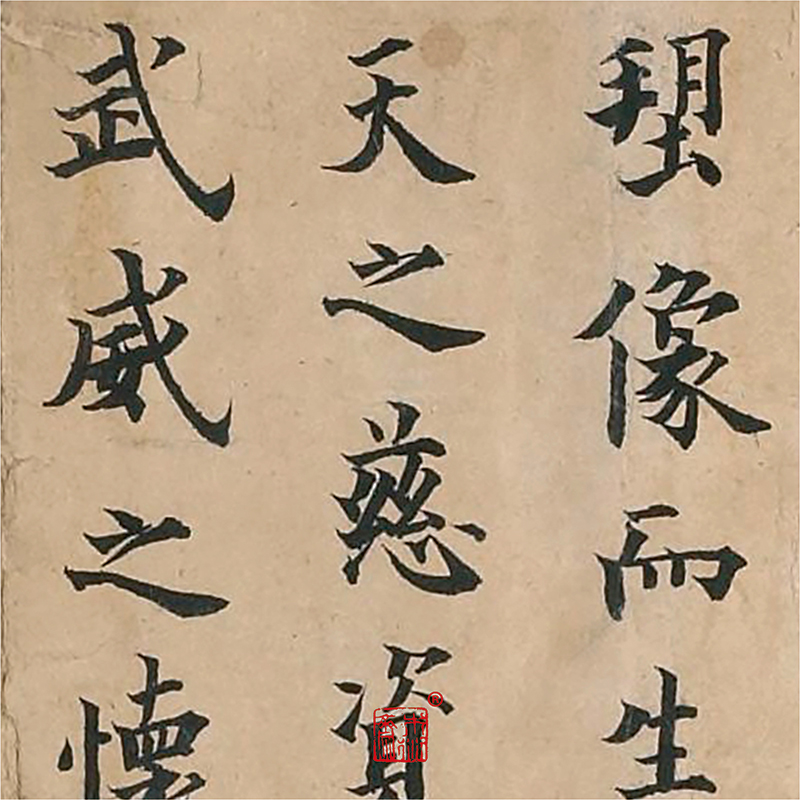 塑像而生
天之慈資
武威之懷